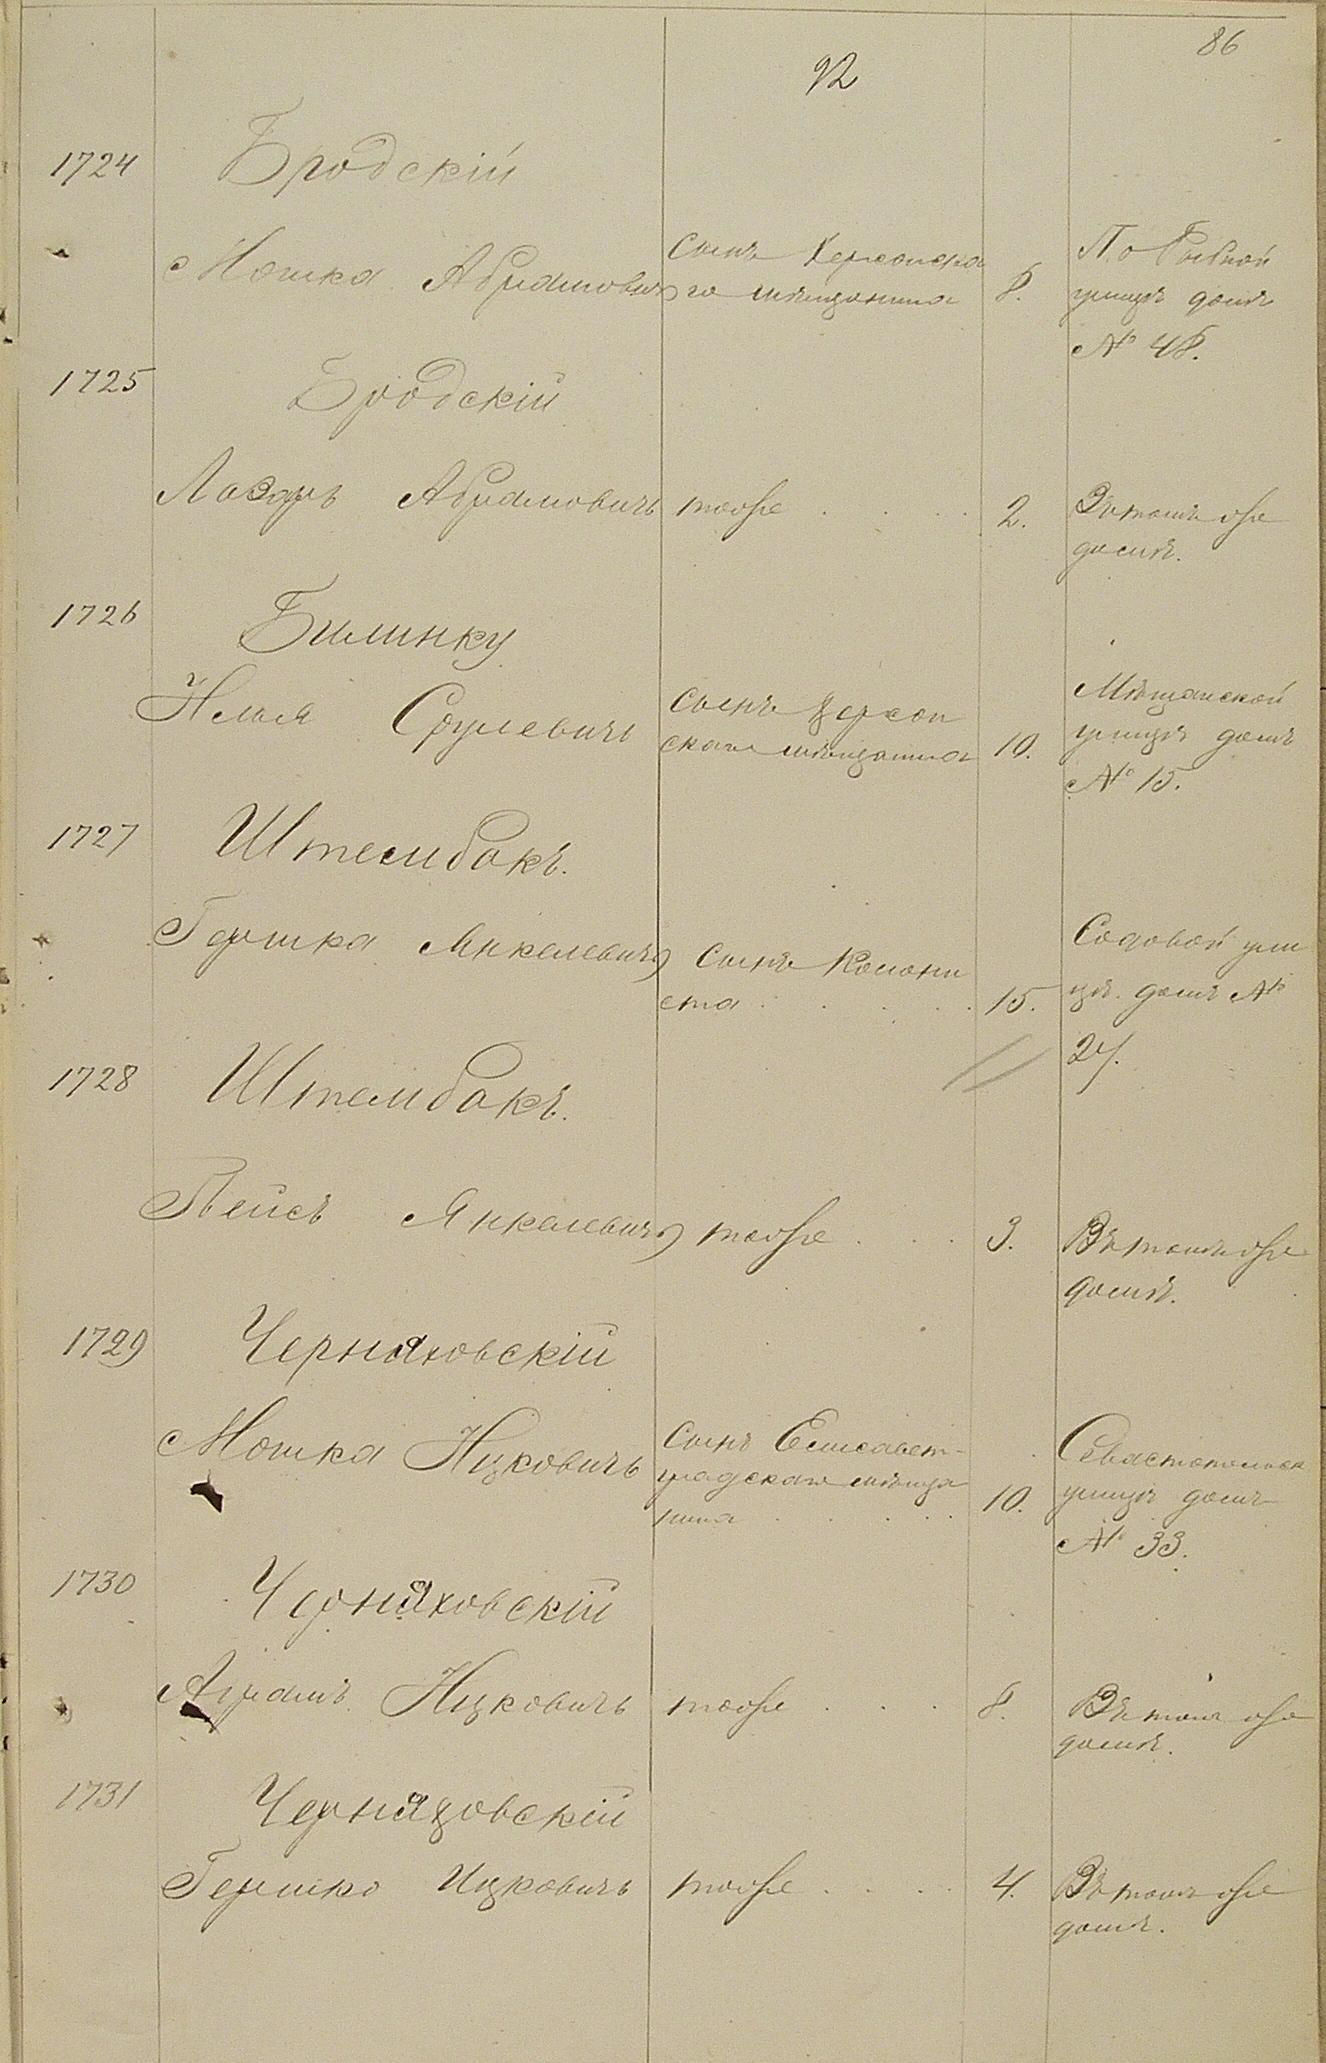 86
92
1724 Бродскій
Мошка Абрамовичъ сынъ Херсонска
го мѣщанина 8. По Рыбной
улицѣ домъ
№ 48.
1725 Бродскій
Лазарь Абрамовичъ тоже . . . . 2. Въ томъ же
домѣ.
1726 Билинку
Илья Срулевичъ сынъ Херсон
скаго мѣщанина 10. Мѣщанской
улицѣ домъ
№ 15.
1727 Штембокъ.
Гершка Янкелевичъ сынъ Колони
ста . . . . 15. Садовой ули
цѣ домъ №
27.
1728 Штембокъ.
Пейсъ Янкелевичъ тоже . . . 3. Въ томъ же
домѣ.
1729 Черняховскій
Мошка Ицковичъ сынъ Елисавет-
градскаго мѣща
нина . . . . 10. Севастопольск
улицѣ домъ
№ 33.
1730 Черняховскій
Абрамъ Ицковичъ тоже . . . 8. Въ томъ же
домѣ.
1731 Черняховскій
Гершко Ицковичъ тоже . . . . 4. Въ томъ же
домѣ.